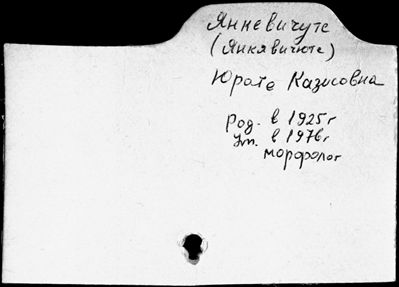 Янневичуте
(Янкявичюте)
Юрате Казисовна
Род. в 1925 г
Ум. в 1976 г
морфолог